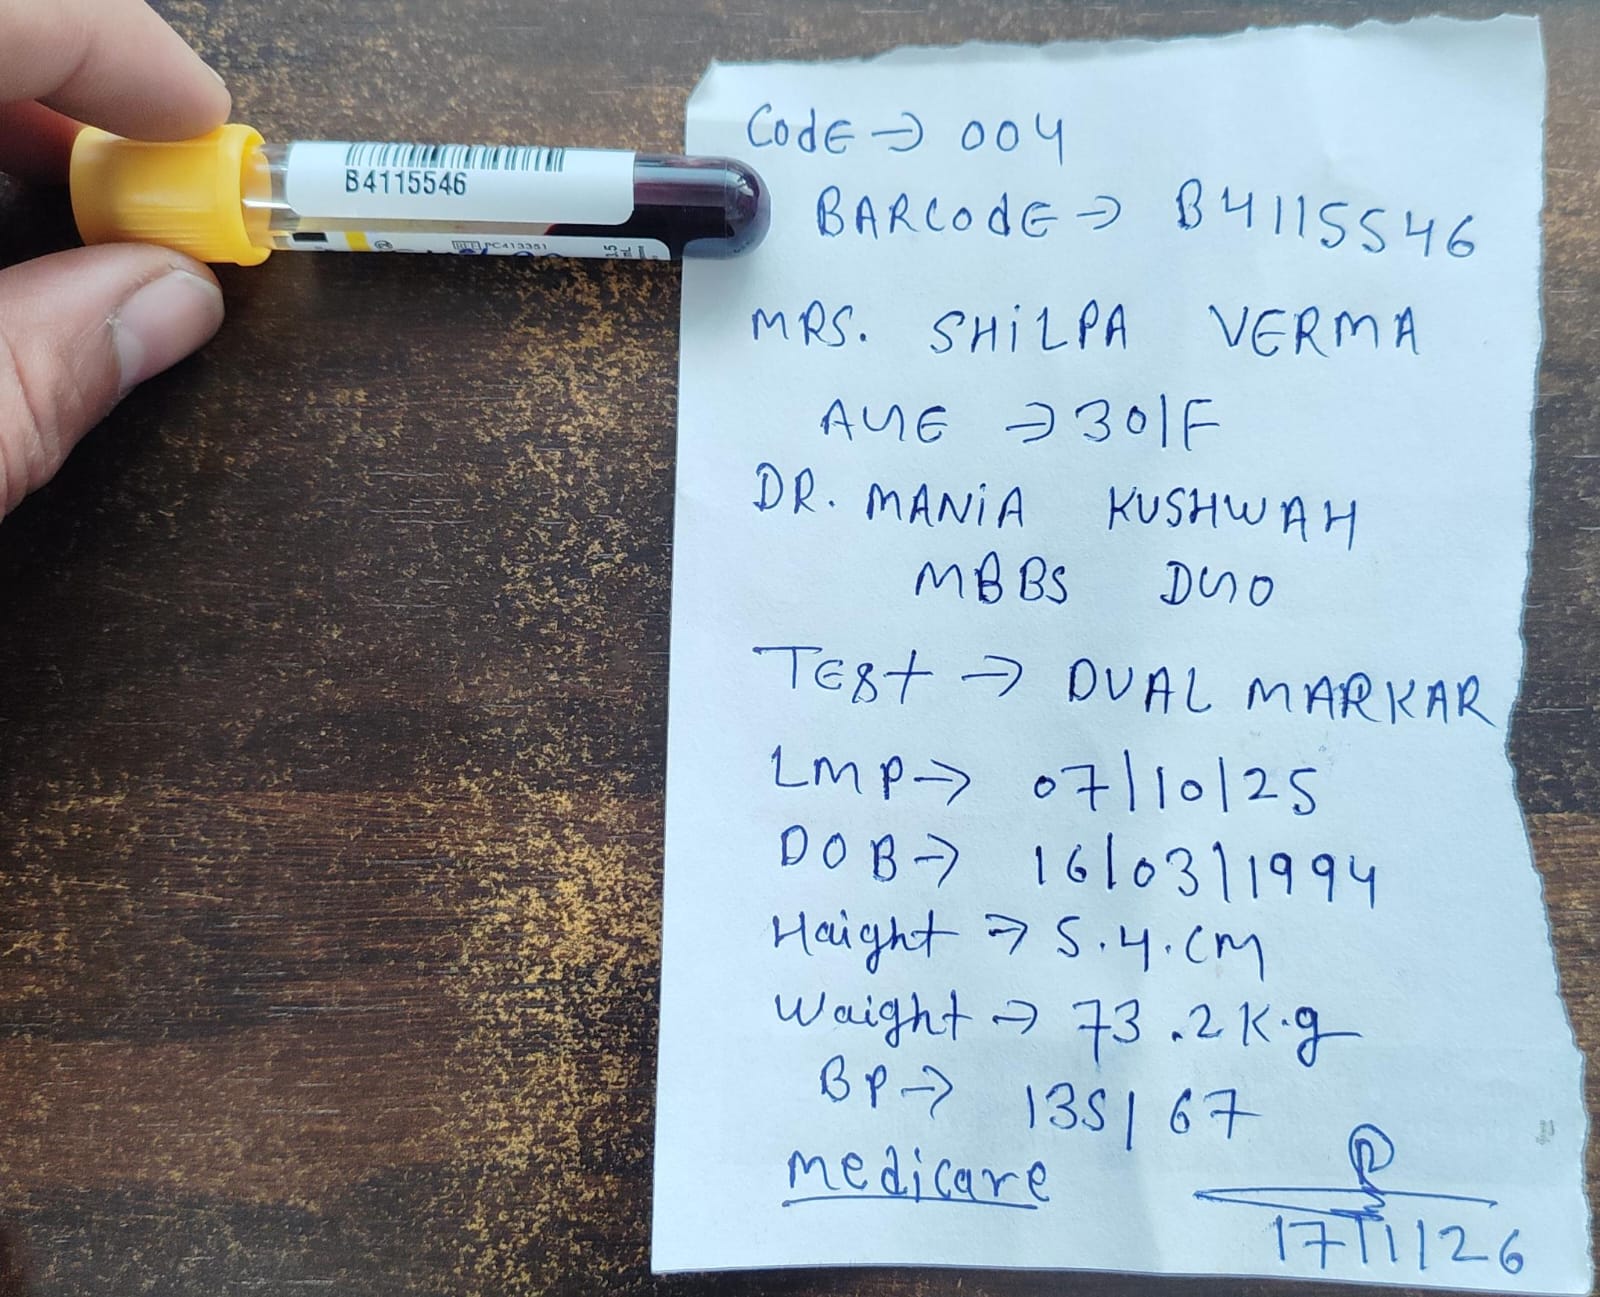 B4115546
PC413351
Code → 004
BARCODE → B4115546
MRS. SHILPA VERMA
AGE → 30/F
DR. MANIA KUSHWAH
MBBS DGO
TEST → DUAL MARKAR
LMP → 07/10/25
DOB → 16/03/1994
Haight → 5.4.CM
Waight → 73.2 K.g
BP → 135/67
medicare
17/1/26